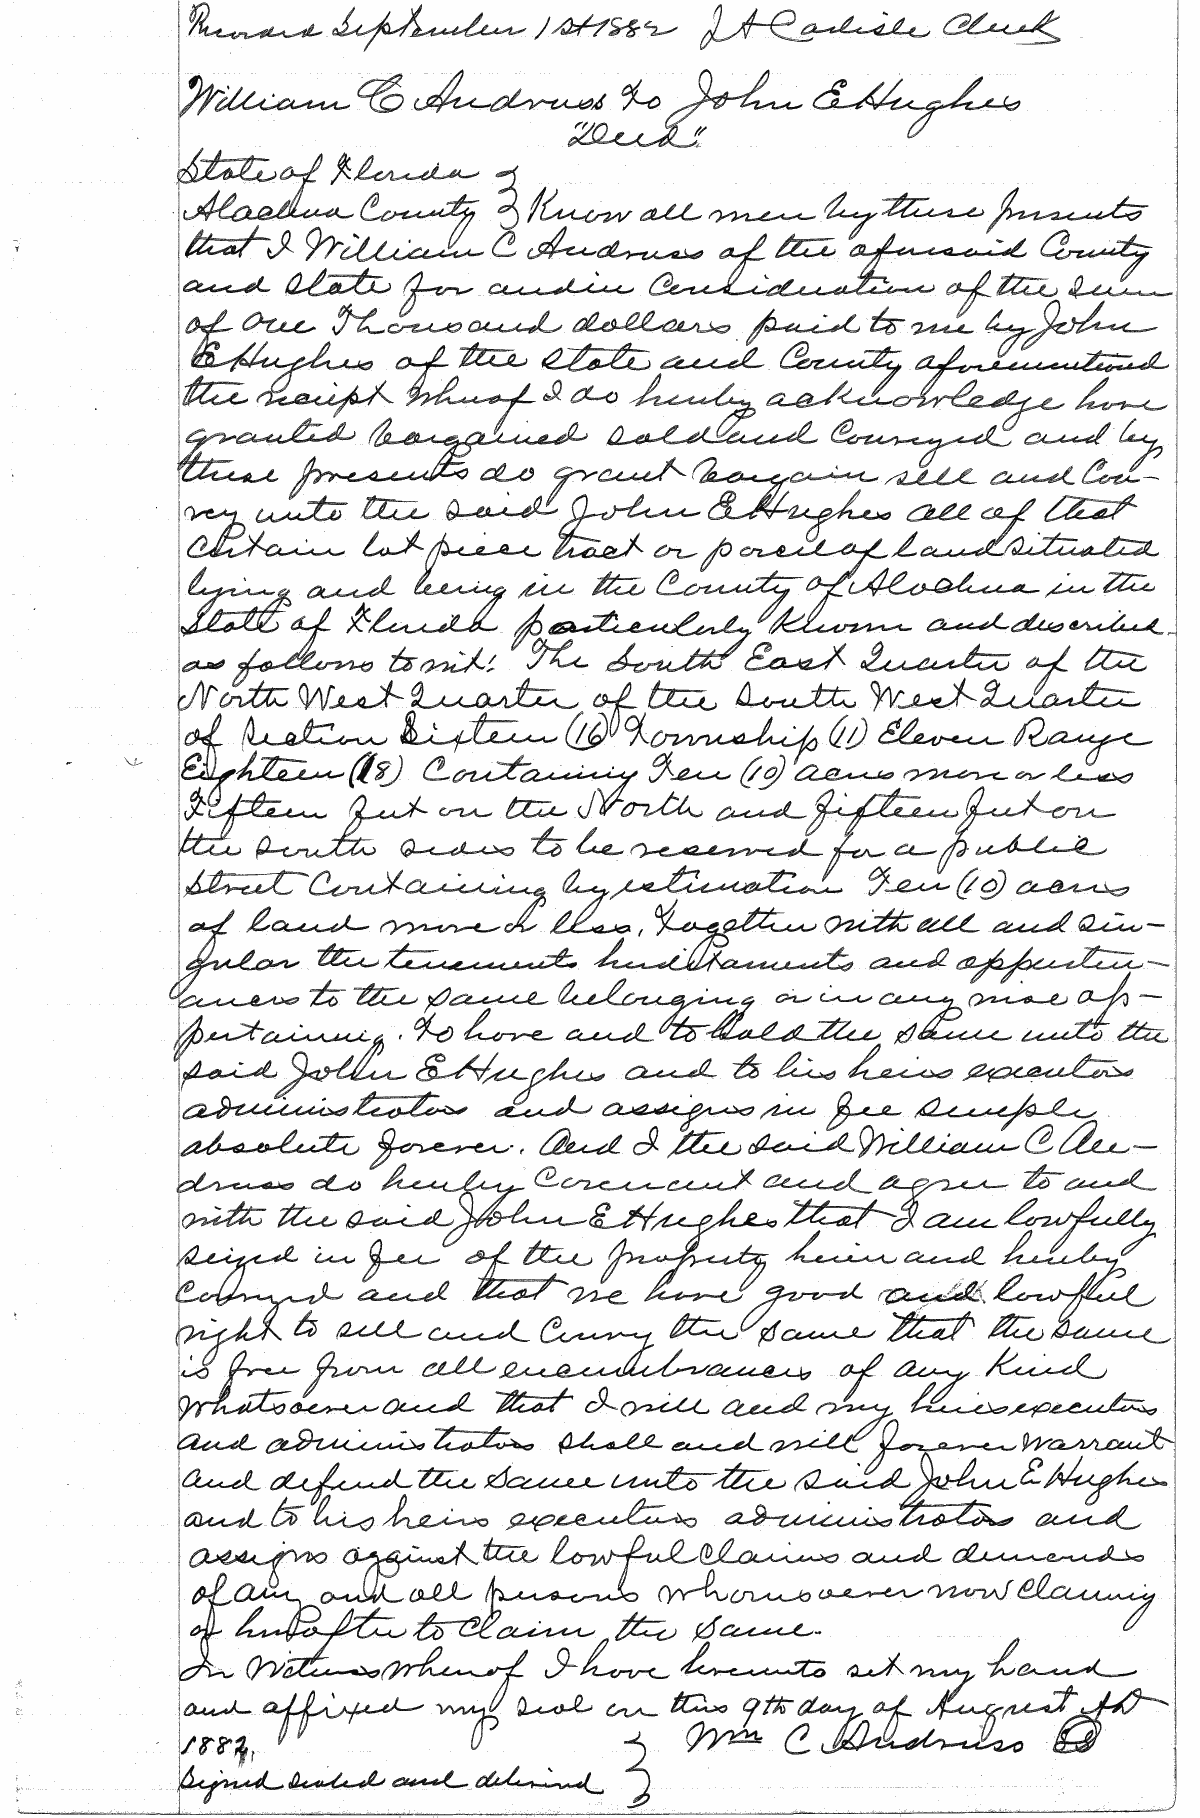 Recorded September 1st 1882 J A Carlisle Clerk
William C Andruss to John E Hughes
"Deed"
State of Florida }
Alachua County } Know all men by these presents
that I William C Andruss of the aforesaid County
and State for and in Consideration of the sum
of One Thousand dollars paid to me by John
E Hughes of the State and County aforementioned
the receipt whereof I do hereby acknowledge have
granted bargained sold and Conveyed and by
these presents do grant bargain sell and Con-
vey unto the said John E Hughes all of that
Certain lot piece tract or parcel of land situated
lying and being in the County of Alachua in the
State of Florida particularly known and described
as follows to wit: The South East Quarter of the
North West Quarter of the South West Quarter
of Section Sixteen (16) Township (11) Eleven Range
Eighteen (18) Containing Ten (10) acres more or less
Fifteen feet on the North and fifteen feet on
the South sides to be reserved for a public
Street Containing by estimation Ten (10) acres
of land more or less, Together with all and Sin-
gular the tenements hereditaments and appurten-
ances to the same belonging or in any wise ap-
pertaining. To have and to hold the same unto the
said John E Hughes and to his heirs executors
administrators and assigns in fee simple
absolute forever. And I the said William C An-
druss do hereby Covenant and agree to and
with the said John E Hughes that I am lawfully
seized in fee of the property herein and hereby
Conveyed and that we have good and lawful
right to sell and Convey the same that the same
is free from all encumbrances of any Kind
whatsoever and that I will and my heirs executors
and administrators shall and will forever Warrant
and defend the same unto the said John E Hughes
and to his heirs executors administrators and
assigns against the lawful Claims and demands
of any and all persons whomsoever now Claiming
or hereafter to Claim the same.
In Witness Whereof I have hereunto set my hand
and affixed my seal on this 9th day of August AD
1882. } Wm C. Andruss
Signed sealed and delivered }